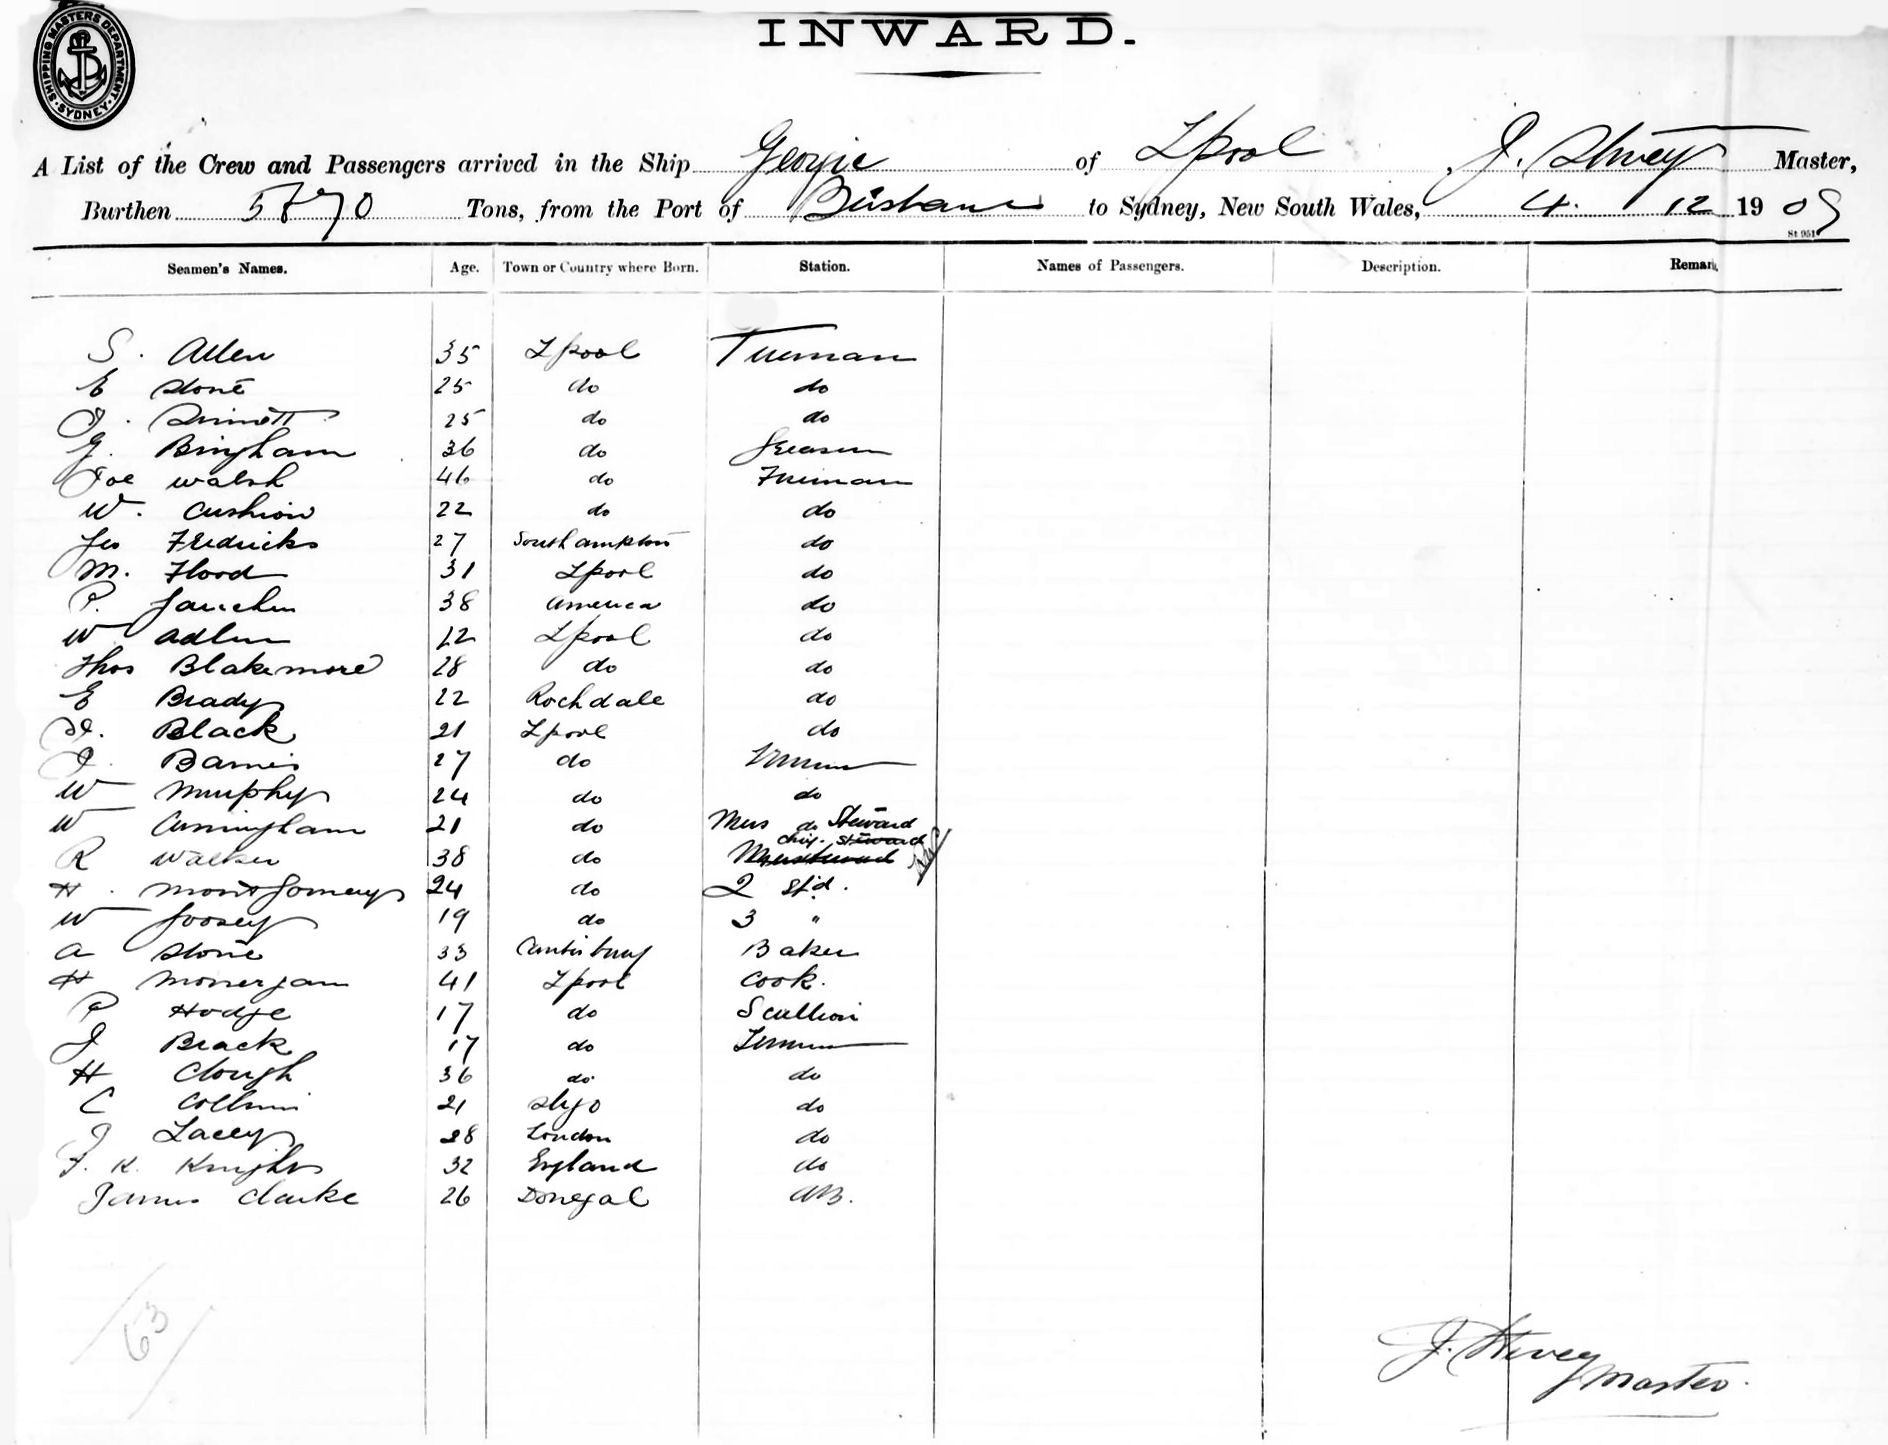 SHIPPING MASTERS DEPARTMENT
SYDNEY
INWARD.
A List of the Crew and Passengers arrived in the Ship Georgic of Lpool , J. Master,
Burthen Tons, from the Port of Brisbane to Sydney, New South Wales, 4. 12 19 09
Seamen's Names. Age. Town or Country where Born. Station. Names of Passengers. Description. Remark
S. Allen 35 Lpool Fireman
E Stone 25 do do
J. Sinnott 25 do do
G. Bingham 36 do Greaser
Joe Walsh 46 do Fireman
W. Cushion 22 do do
Jas Fredricks 27 Southampton do
M. Flood 31 Lpool do
P. 38 America do
W 22 Lpool do
Thos Blakemore 28 do do
E Brady 22 Rochdale do
H. Black 21 Lpool do
J. Barnes 27 do Trimmer
W Murphy 24 do do
W Cunningham 21 do Mess do Steward
chief steward
R Walker 38 do
H. Montgomery 24 do 2 std.
W Goosey 19 do 3 "
A Stone 33 Canterbury Baker
H 41 Lpool Cook.
P Hodge 17 do Scullion
J Brack 17 do Trimmer
H Clough 36 do do
C Collins 21 Sligo do
J Lacey 28 London do
F. K. Knights 32 England do
James Clarke 26 Donegal AB.
63
J. Master.